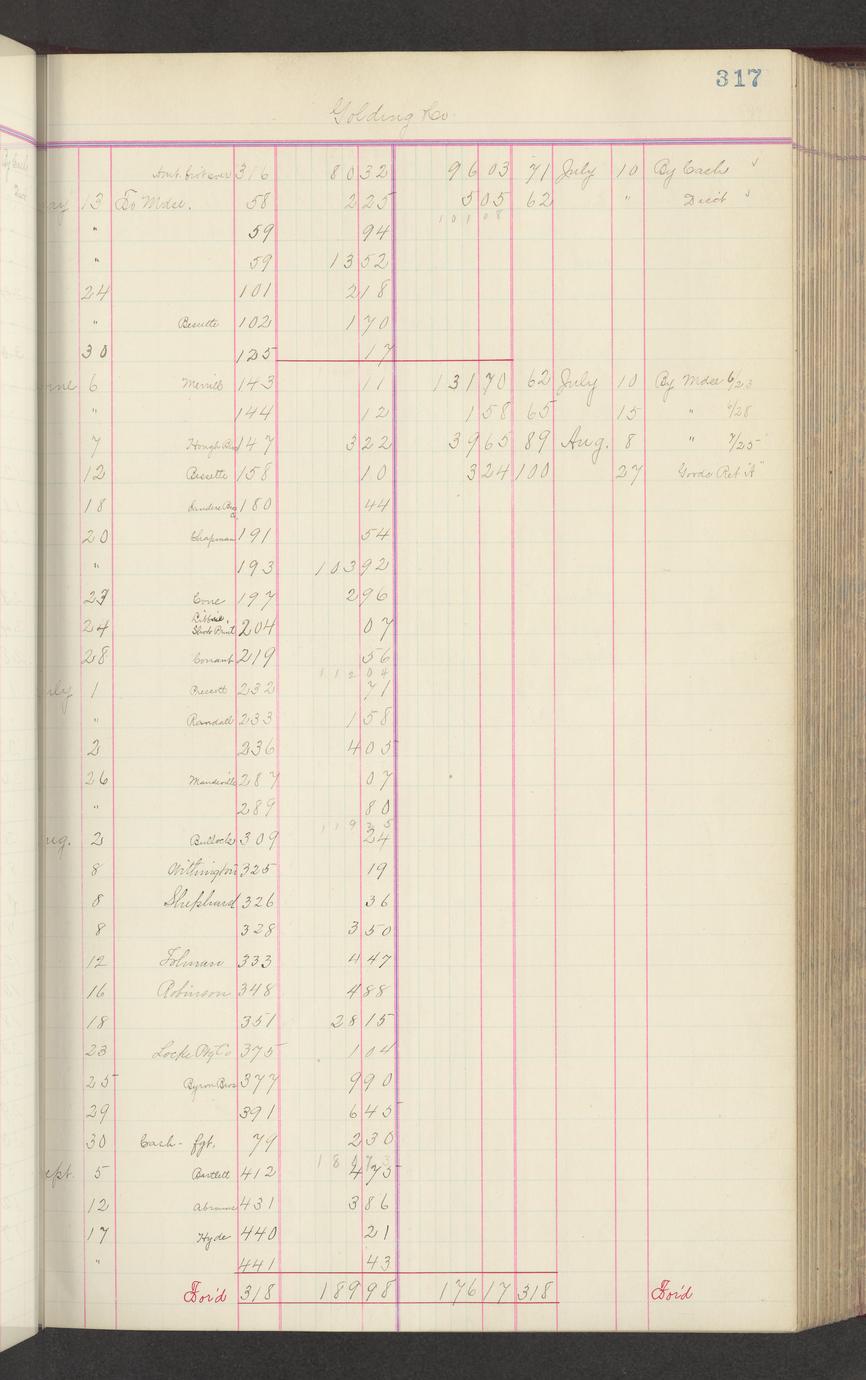 317
Golding Co.
Amt. bro't over 316 80 32 96 03 71 July 10 By Cash ✓
13 To Mdse. 58 2 25 5 05 62 " Disct ✓
" 59 94 101 08
" 59 13 52
24 101 2 18
" Bessette 102 1 70
30 125 17
6 Merrill 143 11 131 70 62 July 10 By Mdse 6/23
" 144 12 1 58 65 15 " 6/28
7 Hough 147 3 22 39 65 89 Aug. 8 " 7/25
12 Bessette 158 10 3 24 100 27 Goods Ret'd
18 180 44
20 Chapman 191 54
" 193 103 92
23 Cone 197 2 96
24 204 07
28 Conant 219 56
112 04
1 Prescott 232 71
" Randall 233 1 58
2 236 4 05
26 Mandeville 287 07
" 289 80
119 35
2 Bullock 309 24
8 Withington 325 19
8 Shephard 326 36
8 328 3 50
12 Tolman 333 4 47
16 Robinson 348 4 88
18 351 28 15
23 Locke Ptg Co 375 1 04
25 Byron Bros 377 9 90
29 391 6 45
30 Cash - fgt. 79 2 30
180 73
5 Bartlett 412 4 75
12 431 3 86
17 Hyde 440 21
" 441 43
For'd 318 189 98 176 17 318 For'd